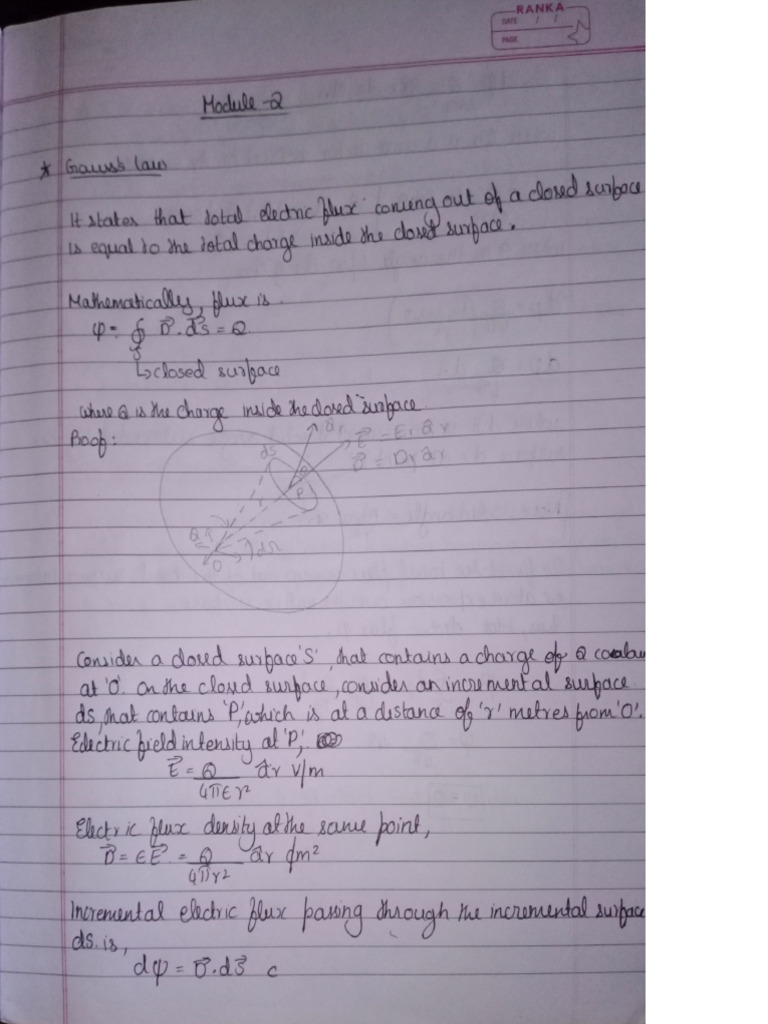 RANKA
DATE / /
PAGE
Module-2
* Gauss's law
It states that total electric flux coming out of a closed surface
is equal to the total charge inside the closed surface.
Mathematically, flux is
φ = ∮ D⃗.ds⃗ = Q
↳ closed surface
where Q is the charge inside the closed surface
Proof:
âr
ds
E⃗ = Er âr
D⃗ = Dr âr
θ
P
Q
r
dΩ
O
Consider a closed surface 'S', that contains a charge of Q
at 'O'. On the closed surface, consider an incremental surface
ds, that contains 'P', which is at a distance of 'r' metres from 'O'.
Electric field intensity at 'P',
E⃗ = Q/4πεr² âr V/m
Electric flux density at the same point,
D⃗ = εE⃗ = Q/4πr² âr c/m²
Incremental electric flux passing through the incremental surface
ds. is,
dφ = D⃗.ds⃗ c